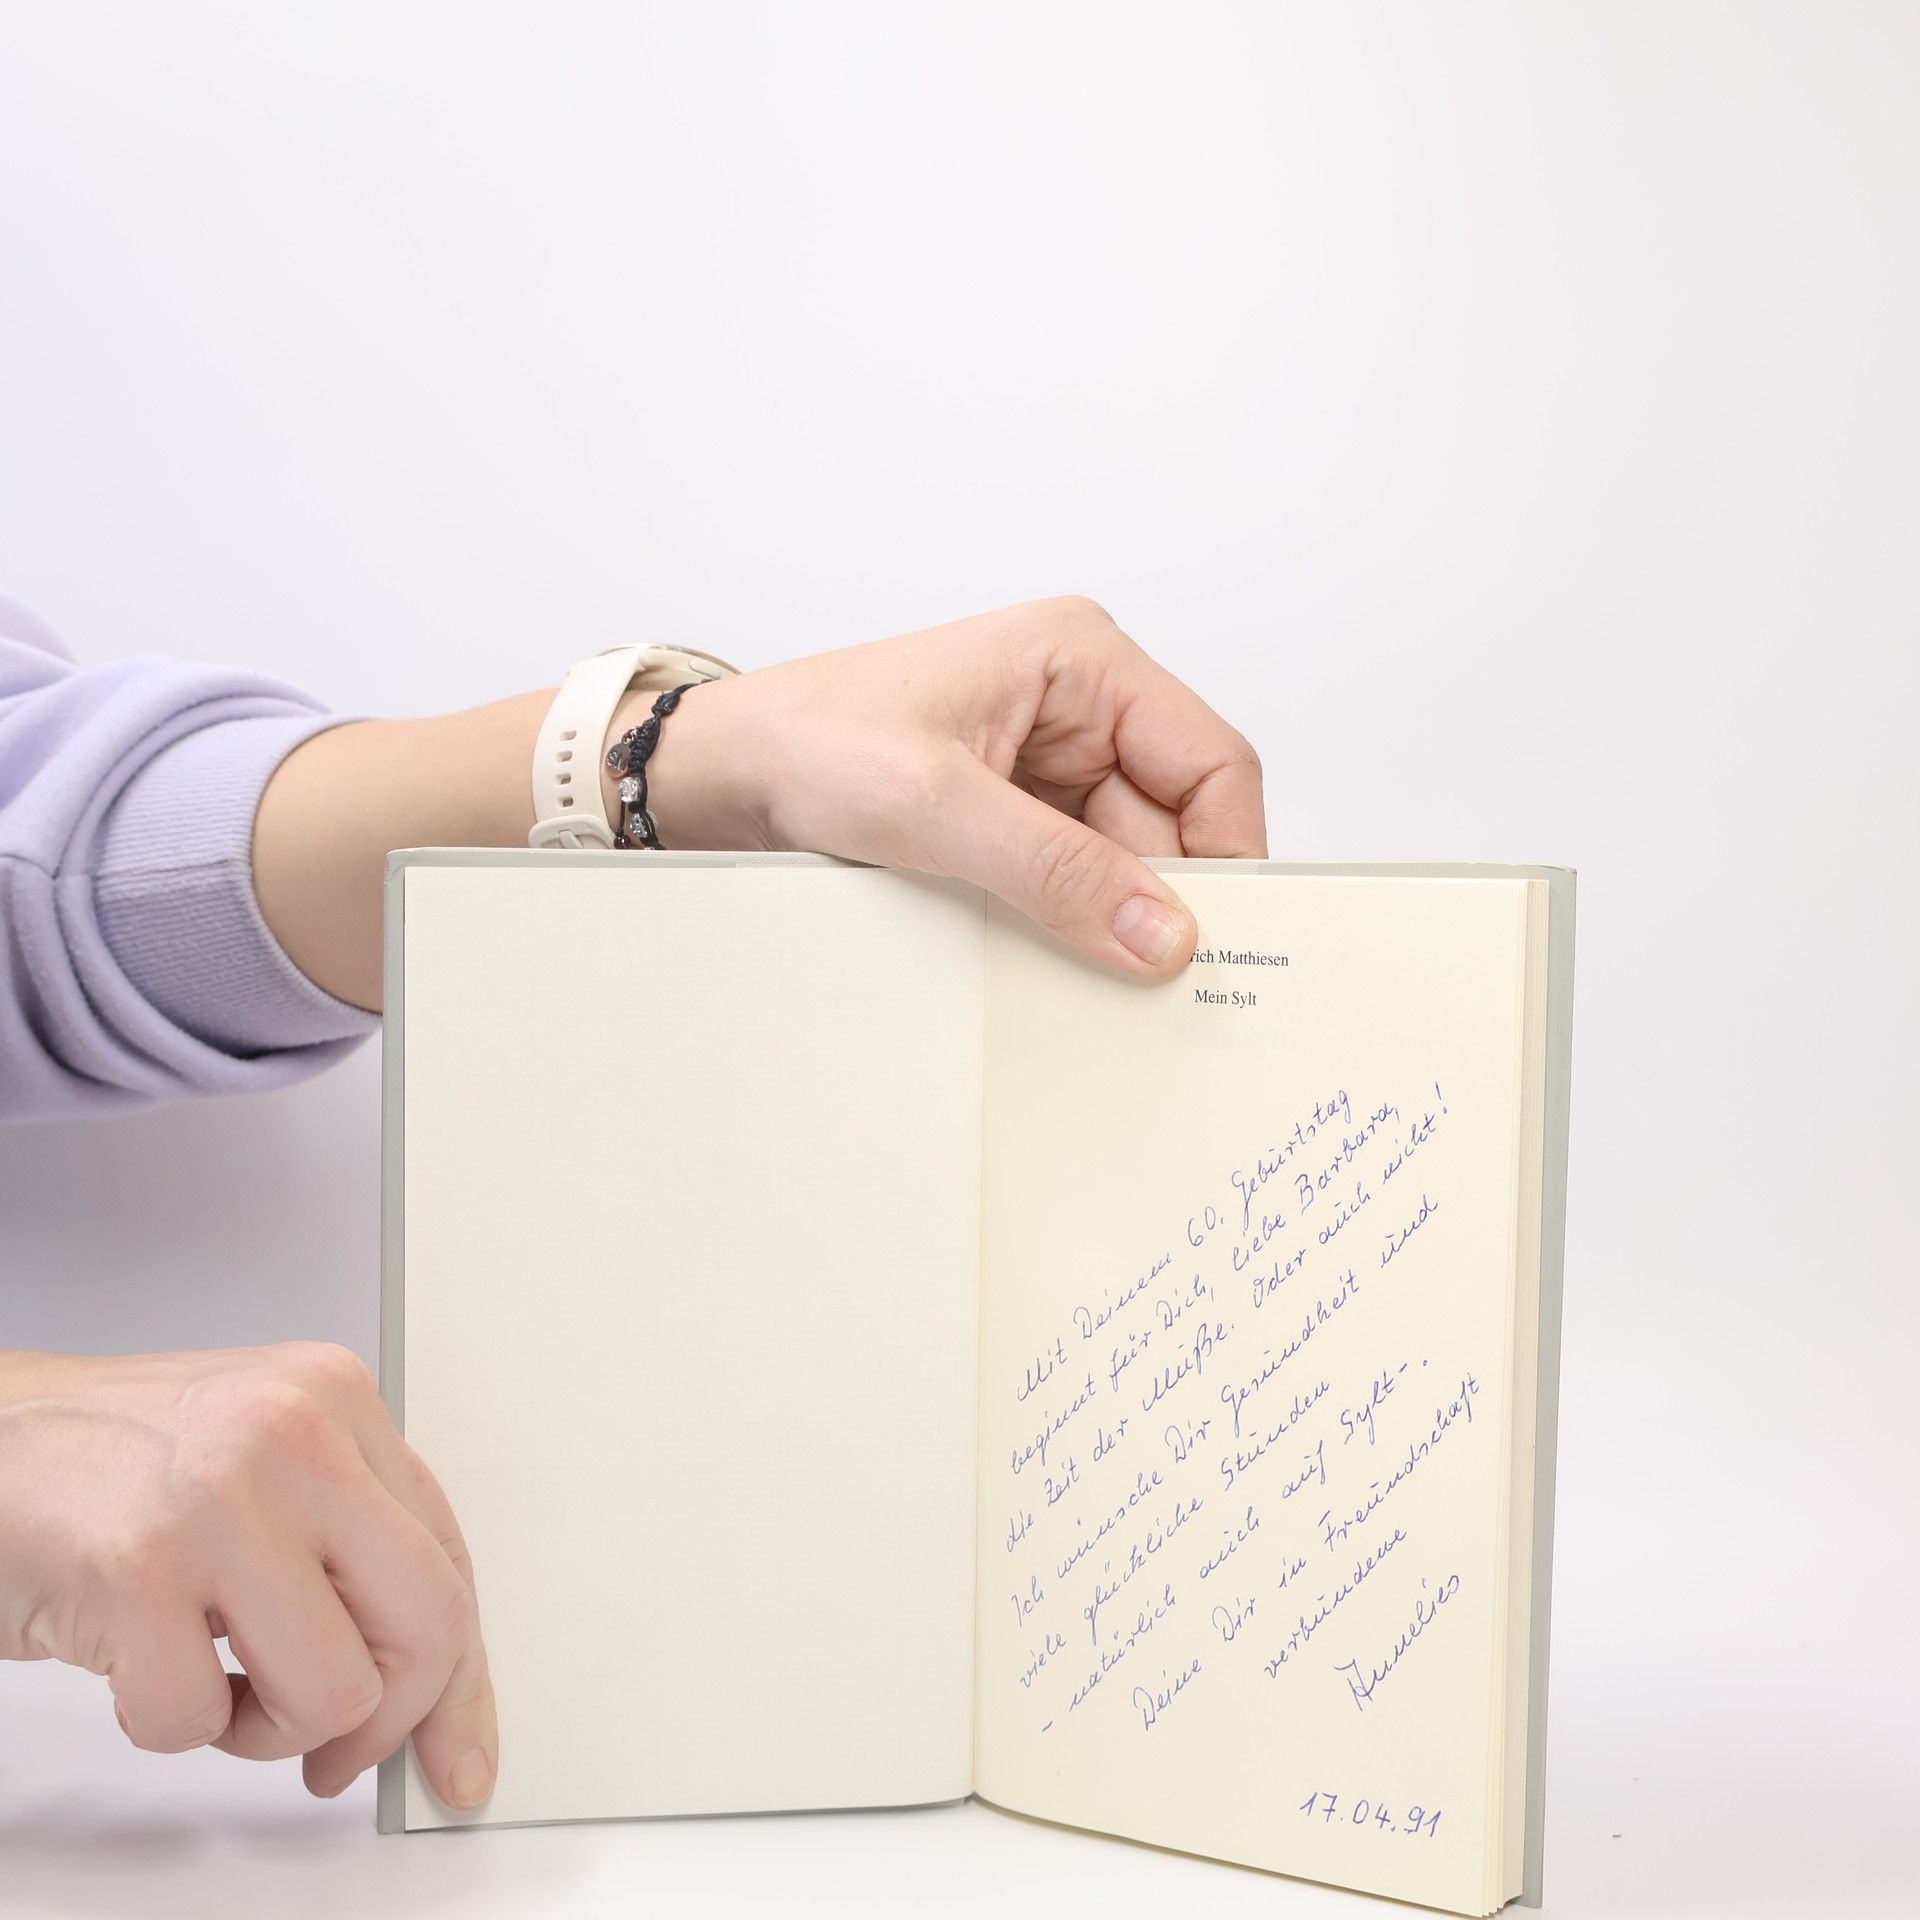 rich Matthiesen
Mein Sylt
Mit Deinem 60. Geburtstag
beginnt für Dich, liebe Barbara,
die Zeit der Muße. Oder auch nicht!
Ich wünsche Dir Gesundheit und
viele glückliche Stunden
- natürlich auch auf Sylt-.
Deine Dir in Freundschaft
verbundene
Annelies
17.04.91